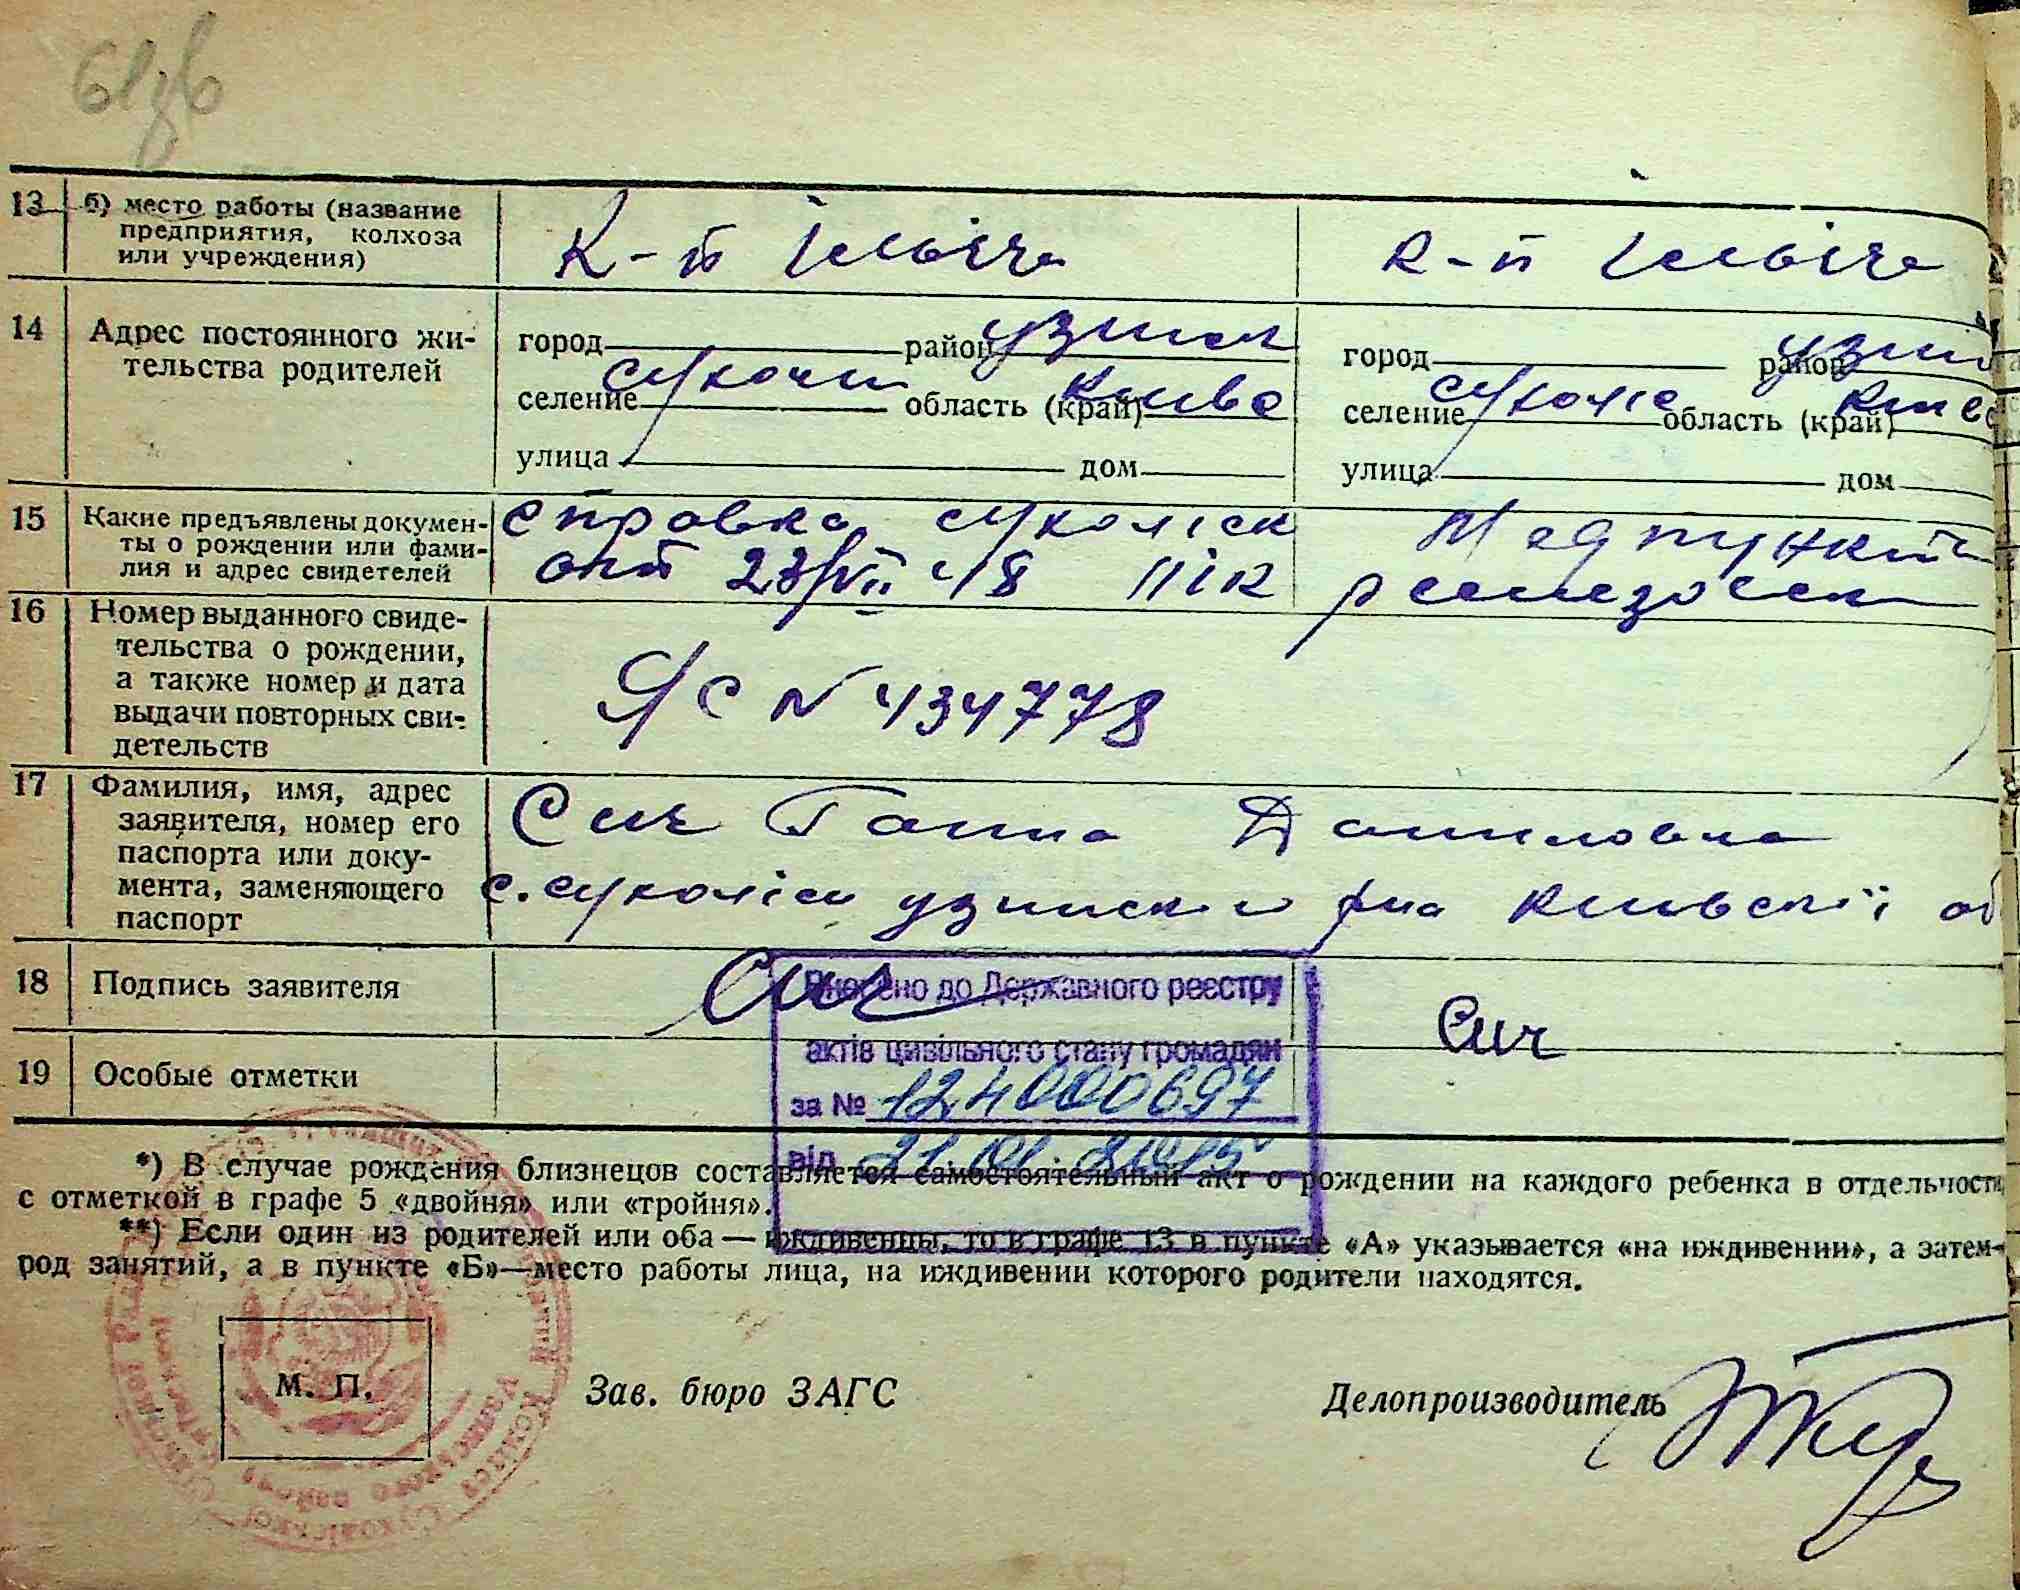 13 б) место работы (название
предприятия, колхоза
или учреждения)
К-п Ілліча
к-п Ілліча
14 Адрес постоянного жи-
тельства родителей
город район Узин
селение Сухоліси область (край) Київс
улица дом
город район Узин
селение Сухоліс область (край) Київс
улица дом
15 Какие предъявлены докумен-
ты о рождении или фами-
лия и адрес свидетелей
справка сухоліск
від 23/VII 48
Медпункт
16 Номер выданного свиде-
тельства о рождении,
а также номер и дата
выдачи повторных сви-
детельств
ЯС N 434778
17 Фамилия, имя, адрес
заявителя, номер его
паспорта или доку-
мента, заменяющего
паспорт
Сич Ганна Даниловна
с. сухоліси узинский р-на Київскії об
18 Подпись заявителя
Сич
Сич
19 Особые отметки
Внесено до Державного реєстру
актів цивільного стану громадян
за № 124000697
від 21.01.2015
*) В случае рождения близнецов составляется самостоятельный акт о рождении на каждого ребенка в отдельности
с отметкой в графе 5 «двойня» или «тройня».
**) Если один из родителей или оба — иждивенцы, то в графе 13 в пункте «А» указывается «на иждивении», а затем
род занятий, а в пункте «Б»—место работы лица, на иждивении которого родители находятся.
М. П.
Зав. бюро ЗАГС
Делопроизводитель